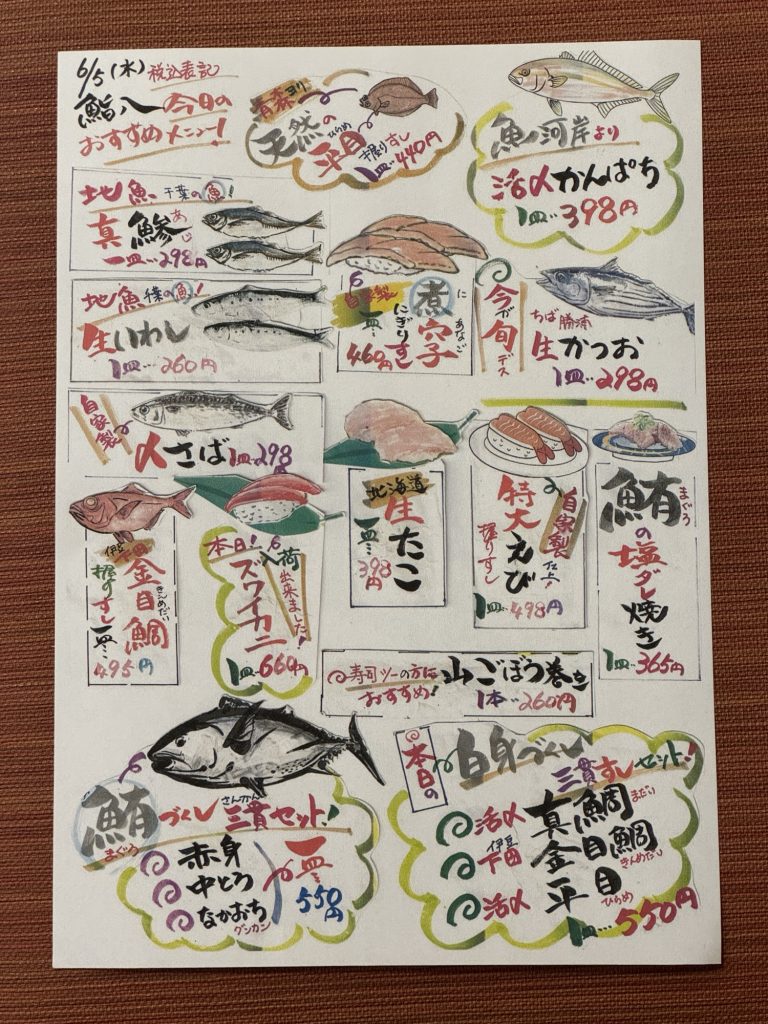 6/5(水) 税込表記
鮨八 今日の
おすすめメニュー!
青森より
天然の
ひらめ
平目 握りすし
1皿…440円
魚河岸より
活〆かんぱち
1皿…398円
地魚 千葉の魚!
真鯵
あじ
一皿…298円
地魚 千葉の魚!
生いわし
1皿…260円
自家製
煮穴子
に あなご
にぎりすし
一皿…
460円
今が旬デス
ちば勝浦
生かつお
1皿…298円
自家製
〆さば 1皿…298円
伊豆下田
金目鯛
きんめだい
握りすし
一皿…
495円
本日!入荷出来ました!
ズワイカニ
1皿…660円
北海道
生たこ
一皿…
398円
自家製仕上!
特大えび
握りすし
1皿…498円
鮪
まぐろ
の塩ダレ焼き
1皿…365円
寿司ツーの方に
おすすめ!
山ごぼう巻き
1本…260円
鮪づくし三貫セット!
まぐろ
さんかん
赤身
中とろ
なかおち
グンカン
一皿…
550円
本日の
白身づくし
三貫すしセット!
活〆 真鯛
まだい
伊豆
下田 金目鯛
きんめだい
活〆 平目
ひらめ
1皿…550円